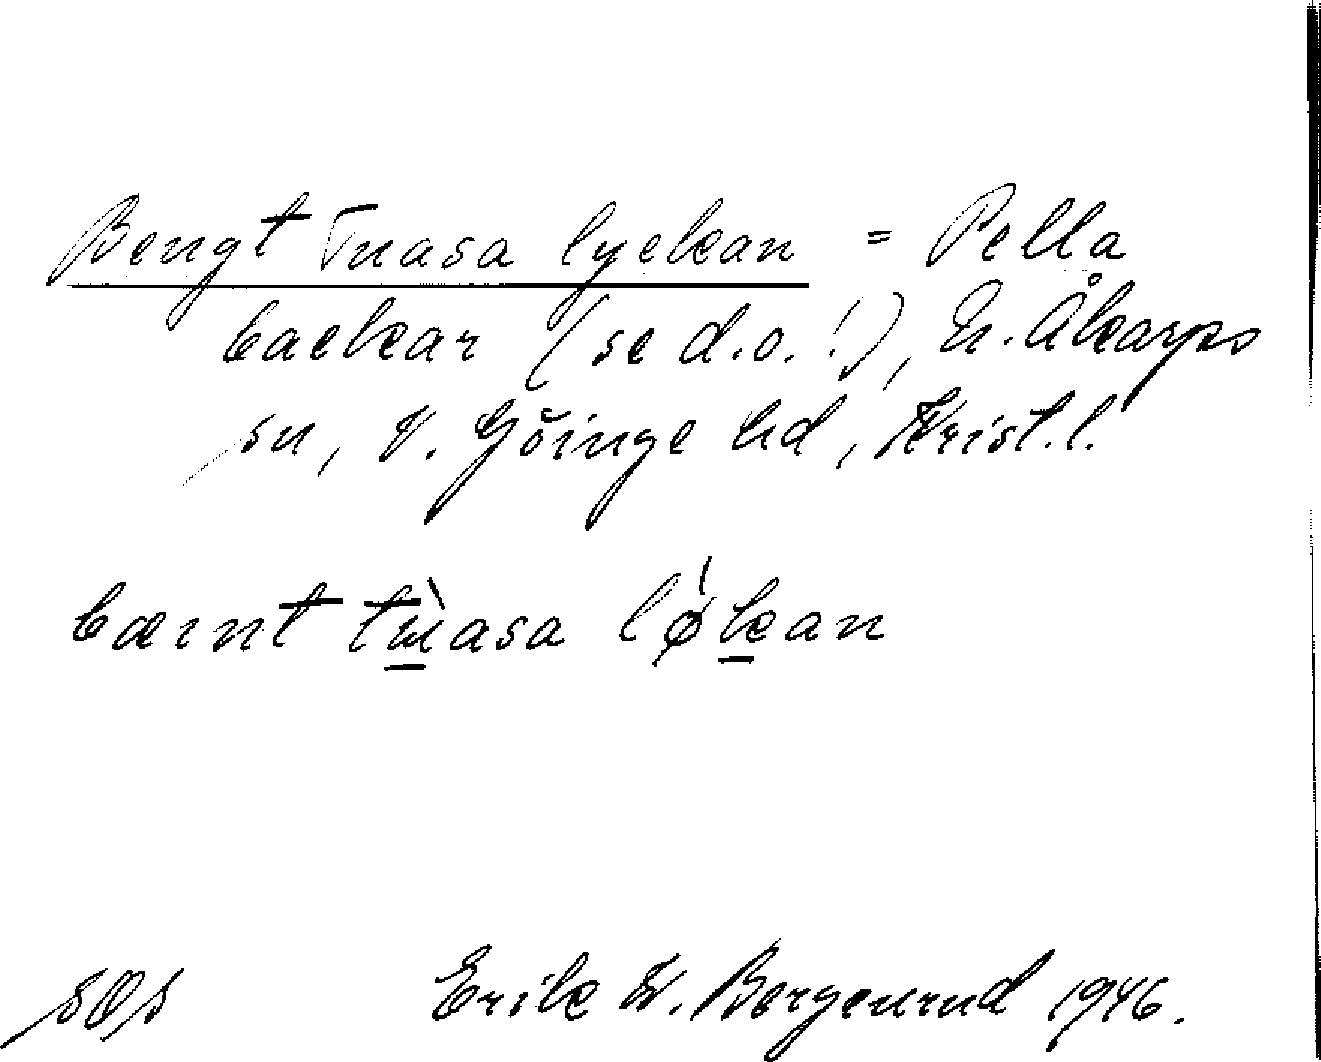 Bengt Tuasa lyckan = Pella
backar (se d.o.!), N. Åkarps
sn, V. Göinge hd, Krist. l.
bæınt tùasa lǿkan
Erik W. Bergenrud 1946.